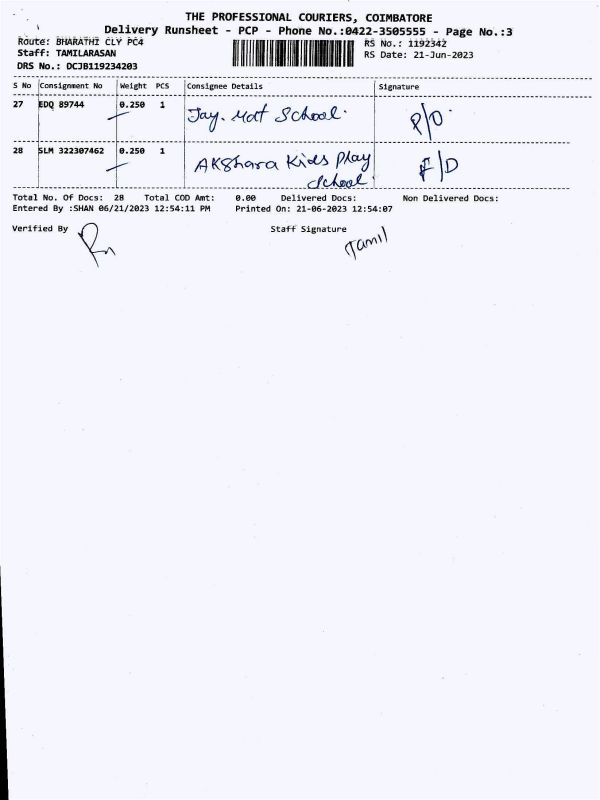 THE PROFESSIONAL COURIERS, COIMBATORE
Delivery Runsheet - PCP - Phone No.:0422-3505555 - Page No.:3
Route: BHARATHI CLY PC4
RS No.: 1192342
Staff: TAMILARASAN
RS Date: 21-Jun-2023
DRS No.: DCJB119234203
S No Consignment No Weight PCS Consignee Details Signature
27 EDQ 89744 0.250 1 Jay. Mat School.
28 SLM 322307462 0.250 1 Akshara Kids Play
School.
F/D
Total No. Of Docs: 28 Total COD Amt: 0.00 Delivered Docs: Non Delivered Docs:
Entered By :SHAN 06/21/2023 12:54:11 PM Printed On: 21-06-2023 12:54:07
Verified By Staff Signature
Tamil